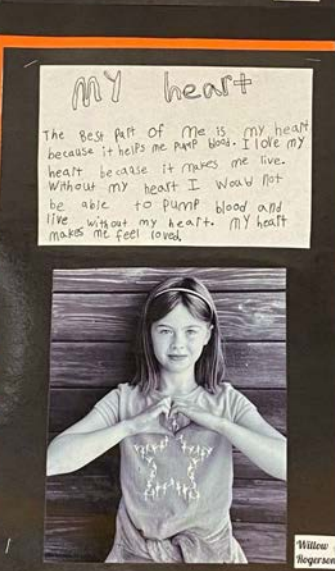 MY heart
The Best Part of Me is my heart
because it helps me pump blood. I love my
heart because it makes me live.
Without my heart I Woald not
be able to pump blood and
live without my heart. MY heart
makes me feel loved.
Willow
Rogerson